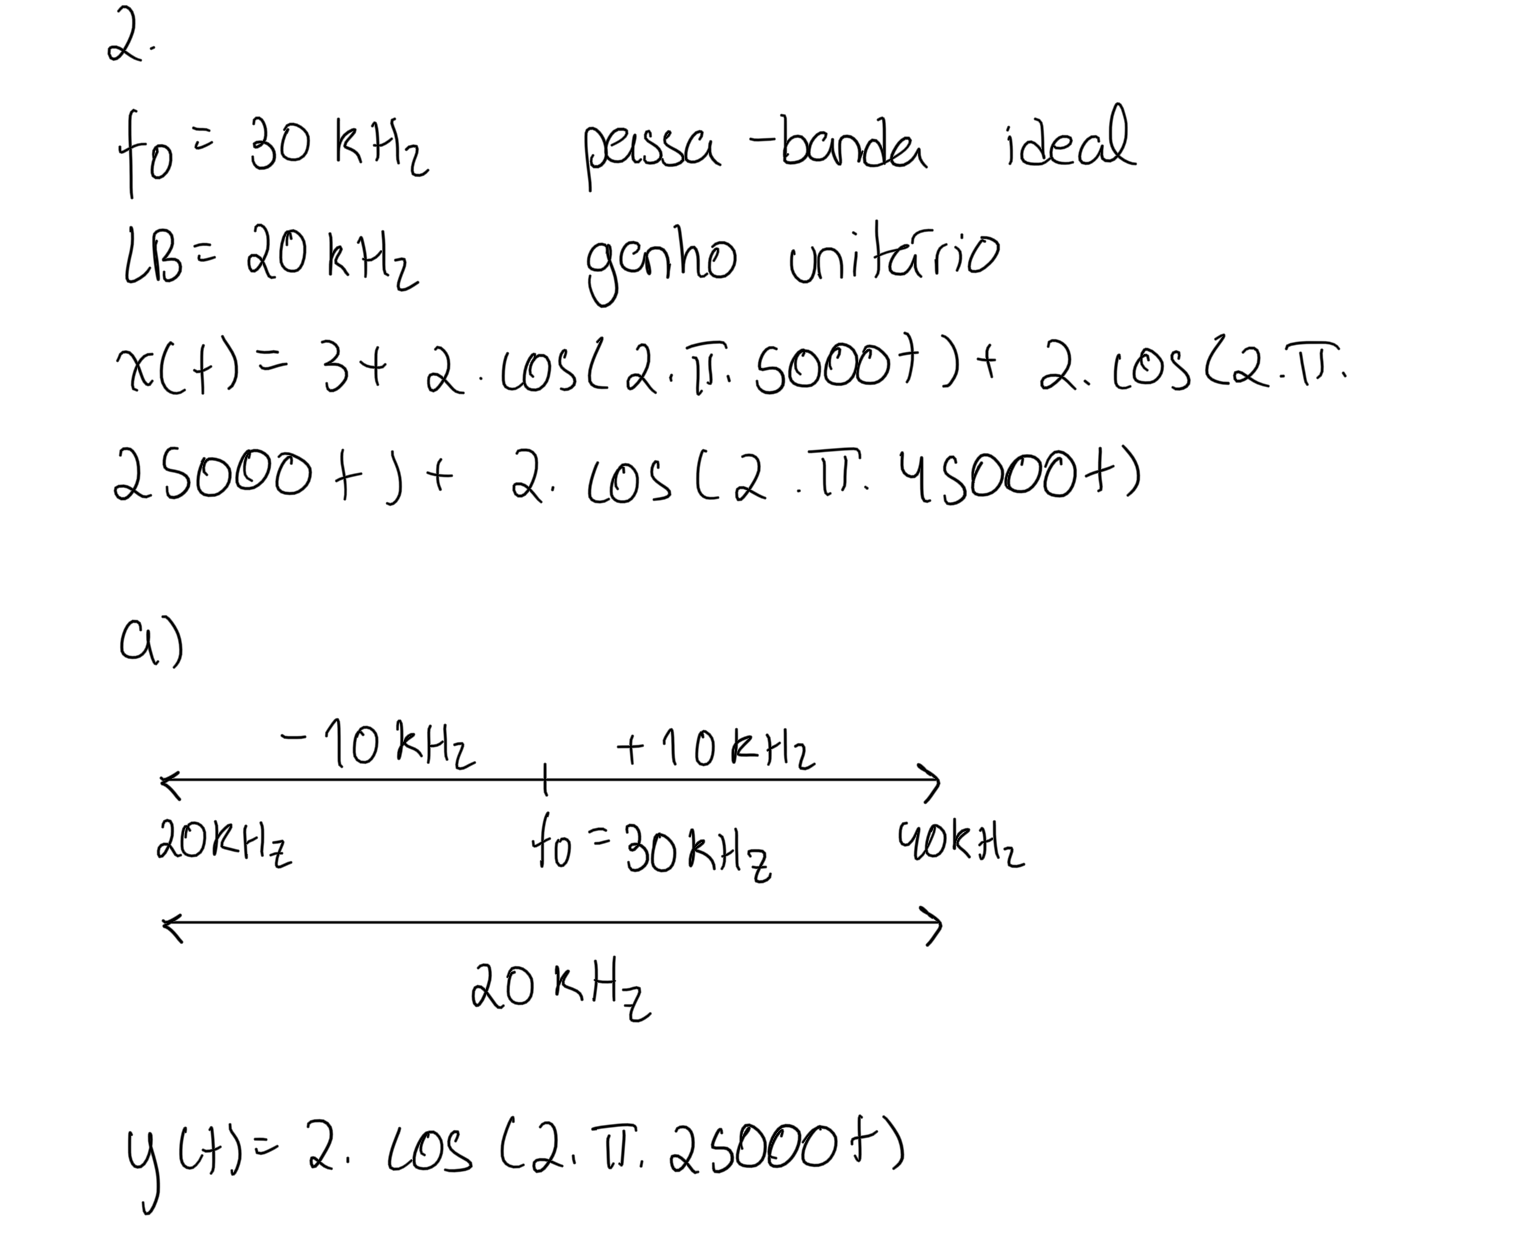 2.
fo = 30 kHz passa-banda ideal
LB = 20 kHz ganho unitário
x(t) = 3 + 2 . cos(2 . π . 5000t) + 2 . cos(2 . π .
25000t) + 2 . cos(2 . π . 45000t)
a)
- 10 kHz + 10 kHz
20 kHz fo = 30 kHz 40 kHz
20 kHz
y(t) = 2 . cos(2 . π . 25000t)